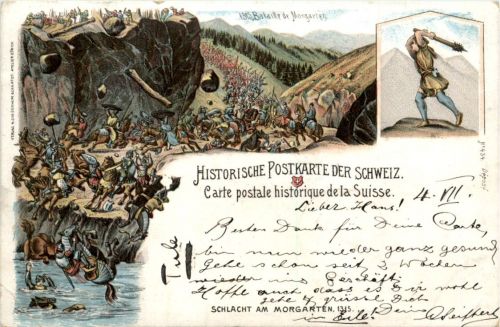 1315 Bataille de Morgarten
HISTORISCHE POSTKARTE DER SCHWEIZ.
Carte postale historique de la Suisse.
Lieber Hans! 4. VII
Besten Dank für Deine Carte,
bin nun wieder ganz gesund
Gehe schon seit 3 Wochen
wieder ins Geschäft.
Hoffe auch, dass es Dir wohl
gehe & grüsse Dich
SCHLACHT AM MORGARTEN, 1315.
in Eile Dein